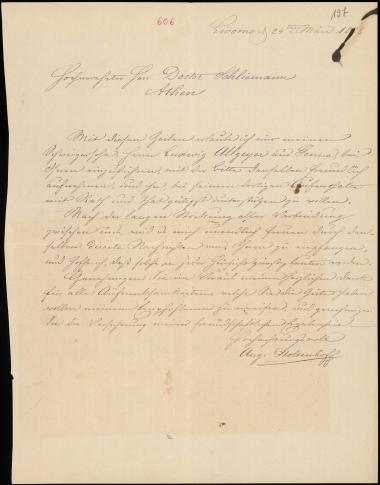 606
197
Livorno d 24ten März 18
Hochverehrter Herr Doctor Schliemann
Athen
Mit diesen Zeilen erlaube ich mir meinen
Schwiegersohn Herrn Ludwig Altgeyer aus Genua, bei
Ihnen einzuführen, mit der Bitte denselben freundlich
aufnehmen, und ihn, bei seinem dortigen Aufenthalte
mit Rath und That gütigst unterstützen zu wollen.
Nach der langen Stockung aller Verbindung
zwischen uns, wird es mich unendlich freuen durch den-
selben directe Nachrichten von Ihnen zu empfangen,
und hoffe ich, daß solche in jeder Hinsicht günstig lauten werden.
Empfangen Sie im Voraus meinen herzlichen Dank
für alle Aufmerksamkeiten, welche Sie die Güte haben
wollen meinem Empfohlenen zu erweisen, und genehmigen
Sie die Versicherung meiner freundschaftlichen Ergebenheit
Hochachtungsvoll
Aug. Stolzenhoff